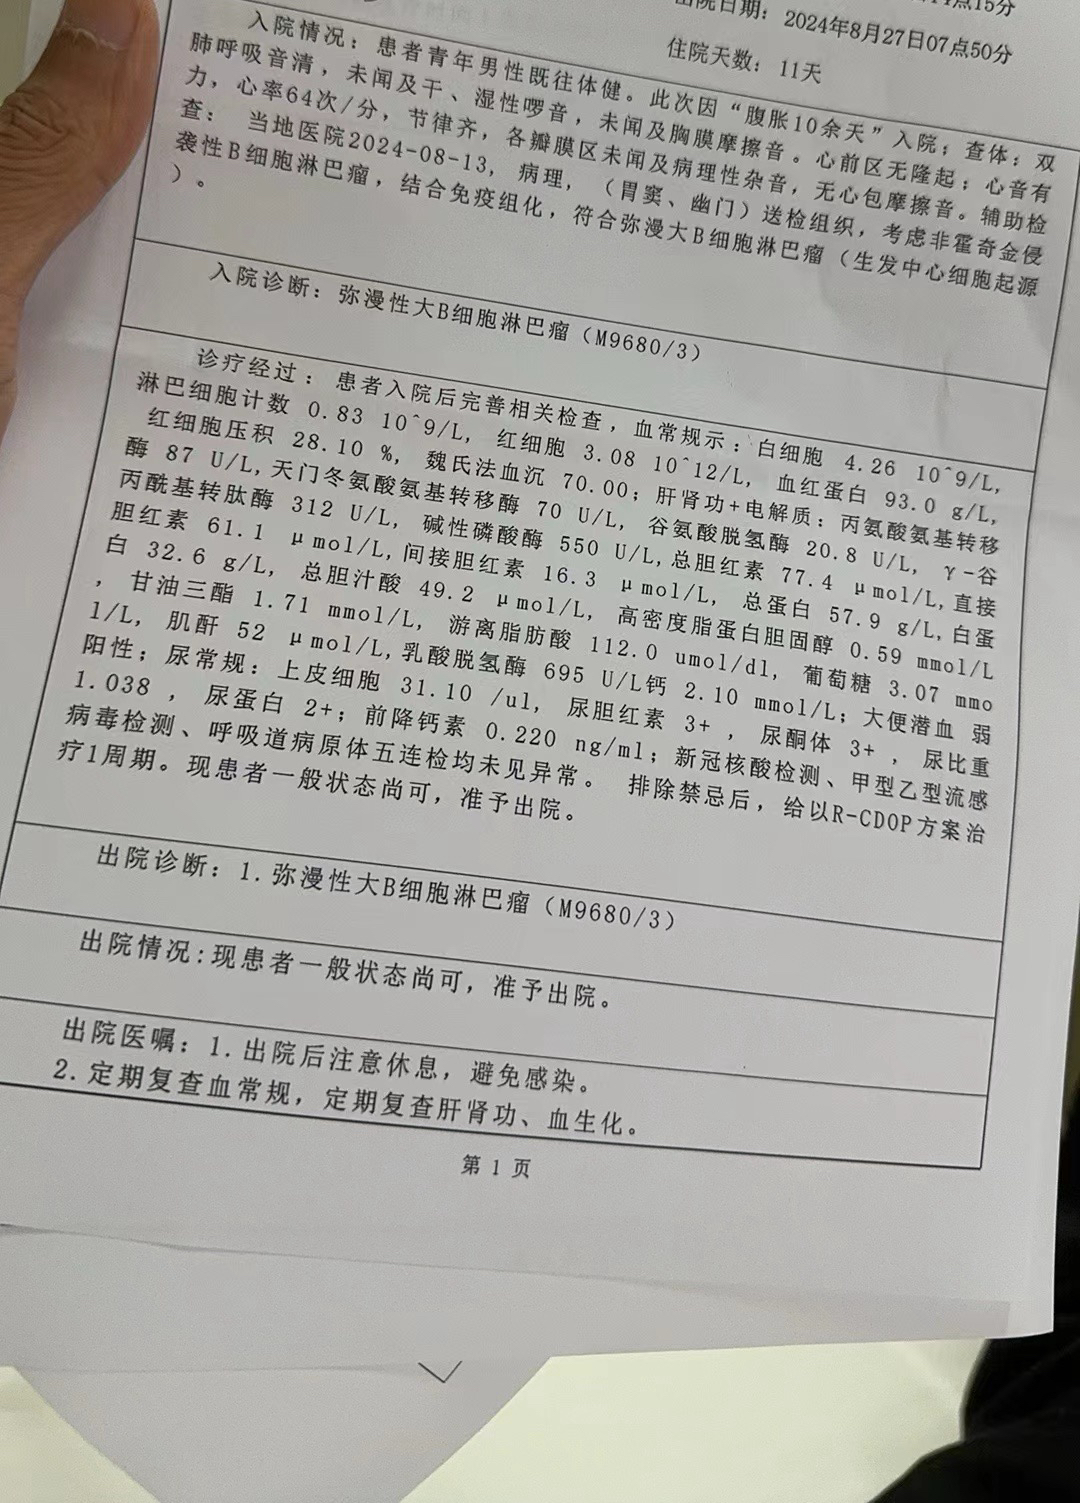 点15分
出院日期：2024年8月27日07点50分
住院天数：11天
入院情况：患者青年男性既往体健。此次因“腹胀10余天”入院；查体：双
肺呼吸音清，未闻及干、湿性啰音，未闻及胸膜摩擦音。心前区无隆起；心音有
力，心率64次/分，节律齐，各瓣膜区未闻及病理性杂音，无心包摩擦音。辅助检
查： 当地医院2024-08-13，病理，（胃窦、幽门）送检组织，考虑非霍奇金侵
袭性B细胞淋巴瘤，结合免疫组化，符合弥漫大B细胞淋巴瘤（生发中心细胞起源
）。
入院诊断：弥漫性大B细胞淋巴瘤（M9680/3）
诊疗经过：患者入院后完善相关检查，血常规示：白细胞 4.26 10^9/L，
淋巴细胞计数 0.83 10^9/L， 红细胞 3.08 10^12/L， 血红蛋白 93.0 g/L，
红细胞压积 28.10 %， 魏氏法血沉 70.00；肝肾功+电解质：丙氨酸氨基转移
酶 87 U/L,天门冬氨酸氨基转移酶 70 U/L， 谷氨酸脱氢酶 20.8 U/L， γ-谷
丙酰基转肽酶 312 U/L， 碱性磷酸酶 550 U/L,总胆红素 77.4 μmol/L,直接
胆红素 61.1 μmol/L,间接胆红素 16.3 μmol/L， 总蛋白 57.9 g/L,白蛋
白 32.6 g/L， 总胆汁酸 49.2 μmol/L， 高密度脂蛋白胆固醇 0.59 mmol/L
， 甘油三酯 1.71 mmol/L， 游离脂肪酸 112.0 umol/dl， 葡萄糖 3.07 mmo
l/L， 肌酐 52 μmol/L,乳酸脱氢酶 695 U/L钙 2.10 mmol/L；大便潜血 弱
阳性；尿常规：上皮细胞 31.10 /ul， 尿胆红素 3+ ， 尿酮体 3+ ， 尿比重
1.038 ， 尿蛋白 2+；前降钙素 0.220 ng/ml；新冠核酸检测、甲型乙型流感
病毒检测、呼吸道病原体五连检均未见异常。 排除禁忌后，给以R-CDOP方案治
疗1周期。现患者一般状态尚可，准予出院。
出院诊断：1.弥漫性大B细胞淋巴瘤（M9680/3）
出院情况:现患者一般状态尚可，准予出院。
出院医嘱：1.出院后注意休息，避免感染。
2.定期复查血常规，定期复查肝肾功、血生化。
第 1 页